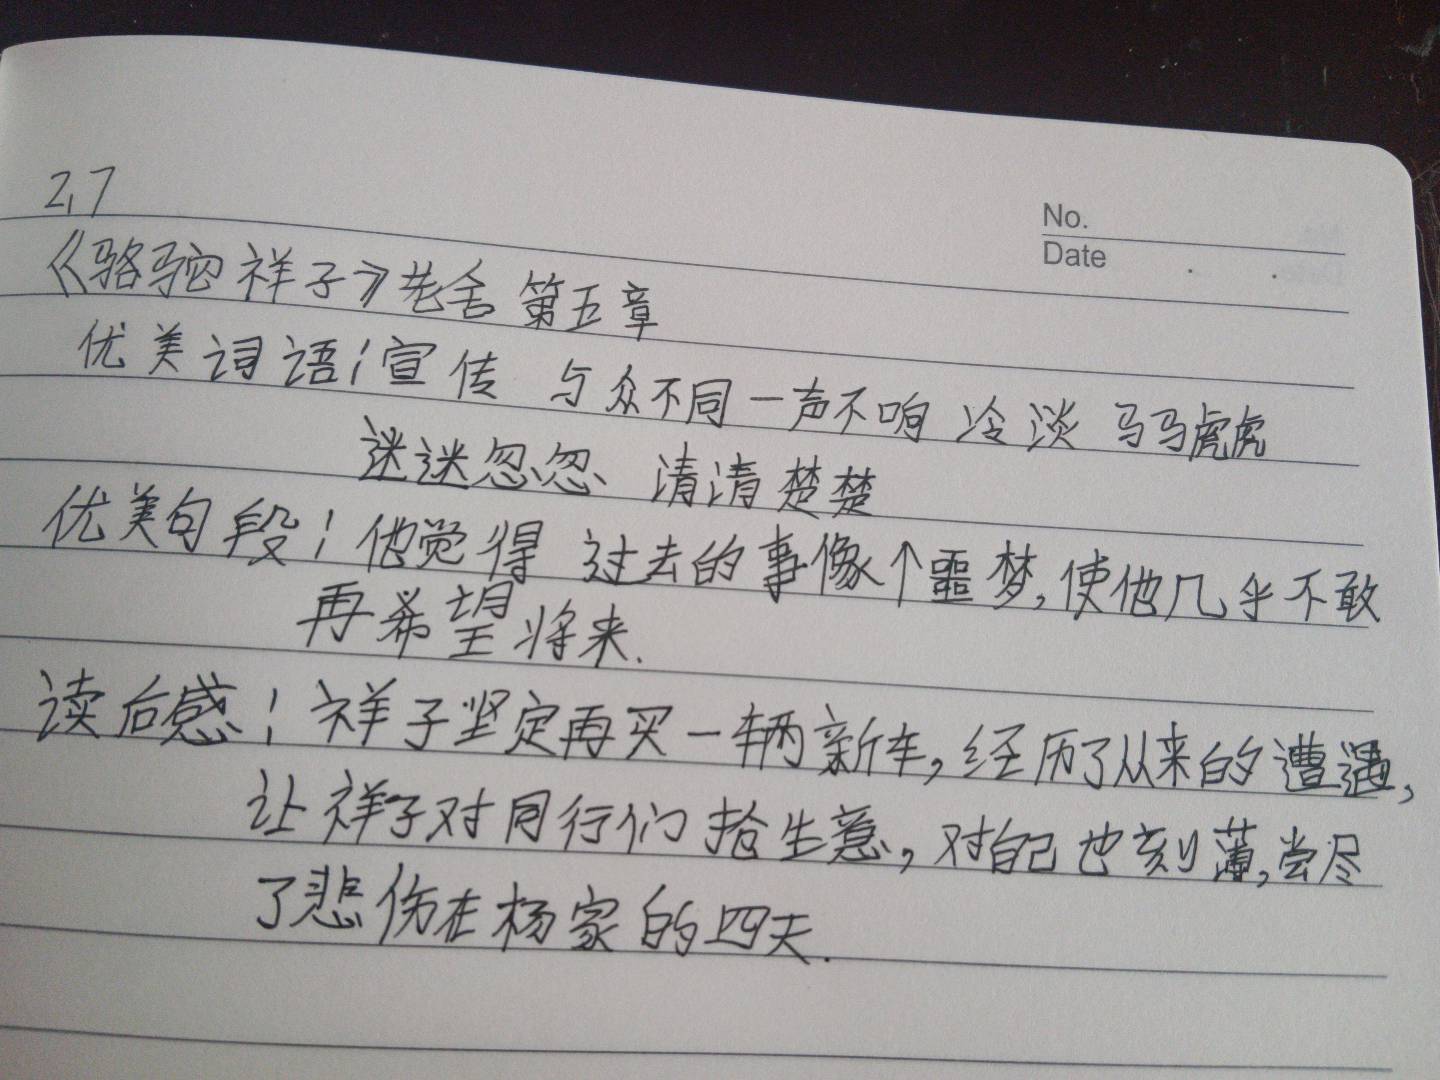 2.7
No.
Date
《骆驼祥子》老舍 第五章
优美词语：宣传 与众不同 一声不响 冷淡 马马虎虎
迷迷忽忽 清清楚楚
优美句段：他觉得 过去的事像个噩梦,使他几乎不敢
再希望将来.
读后感：祥子坚定再买一辆新车,经历了从来的遭遇,
让祥子对同行们抢生意,对自己也刻薄,尝尽
了悲伤在杨家的四天.